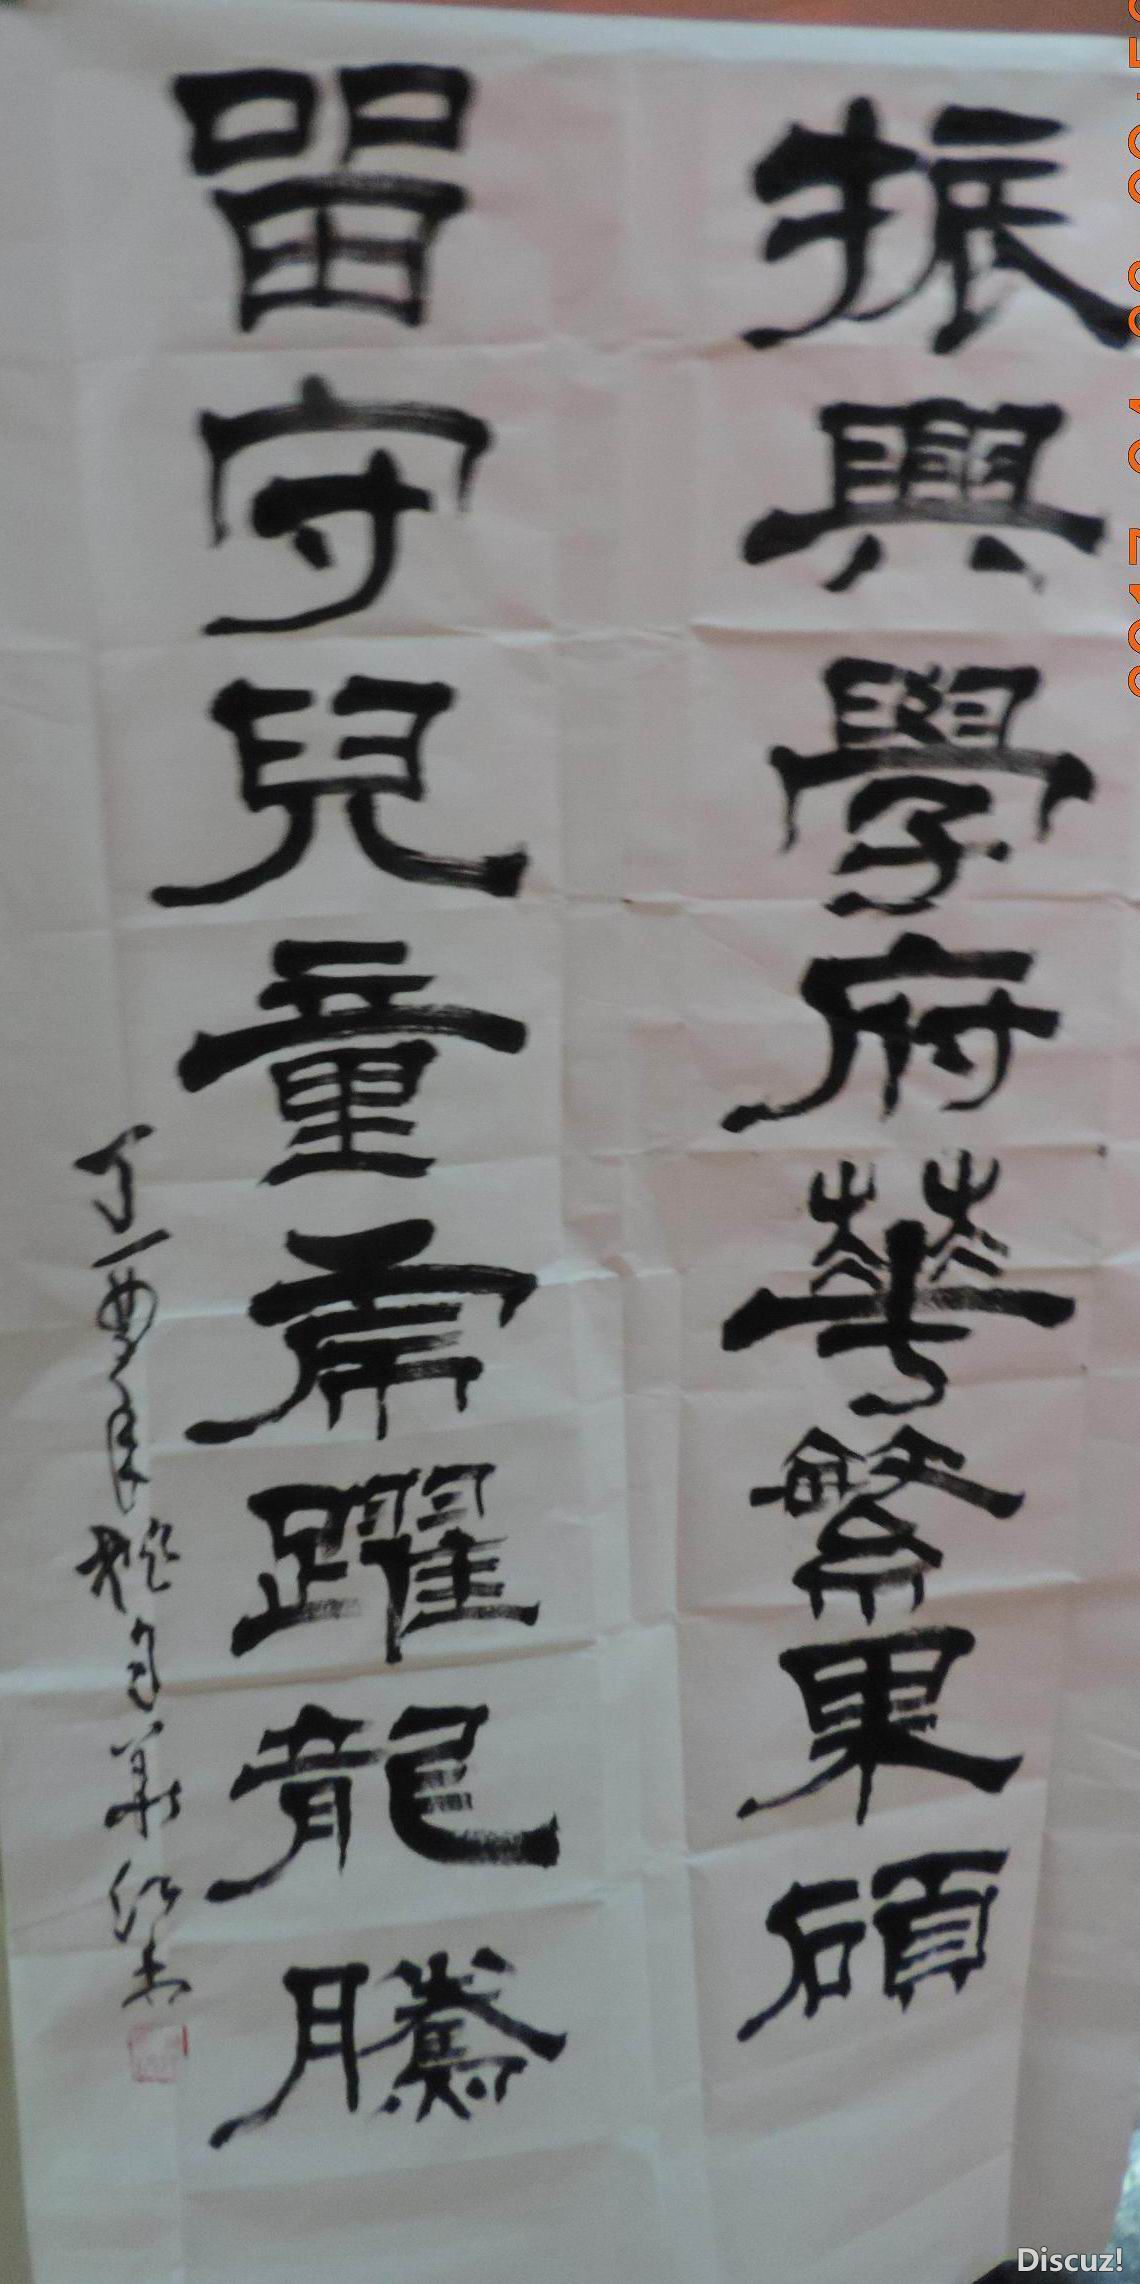 振興學府華繁果碩
留守兒童虎躍龍騰
丁酉年
Discuz!